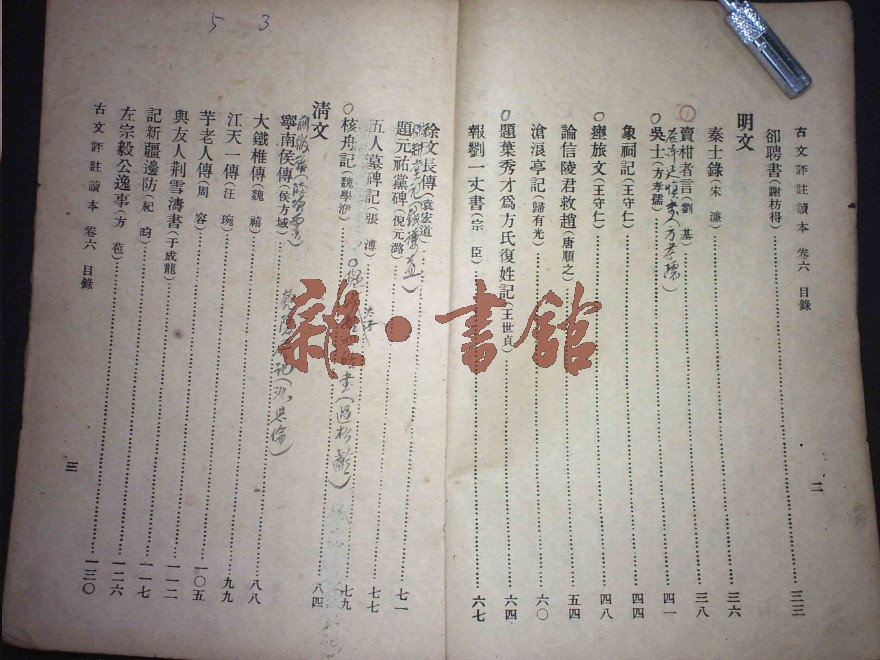 古文評註讀本 卷六 目錄
二
卻聘書(謝枋得)……三三
明文
秦士錄(宋濂)……三六
賣柑者言(劉基)……三八
吳士(方孝孺)……四一
象祠記(王守仁)……四四
瘞旅文(王守仁)……四八
論信陵君救趙(唐順之)……五四
滄浪亭記(歸有光)……六〇
題葉秀才爲方氏復姓記(王世貞)……六四
報劉一丈書(宗臣)……六七
徐文長傳(袁宏道)
題元祐黨碑(倪元璐)……七一
五人墓碑記(張溥)……七七
核舟記(魏學洢)……七九
清文
寧南侯傳(侯方域)……八四
大鐵椎傳(魏禧)……八八
江天一傳(汪琬)……九九
芋老人傳(周容)……一〇五
與友人荆雪濤書(于成龍)……一一二
記新疆邊防(紀昀)……一一七
左宗毅公逸事(方苞)……一二六
一三〇
古文評註讀本 卷六 目錄
三
5 3
雜·書館